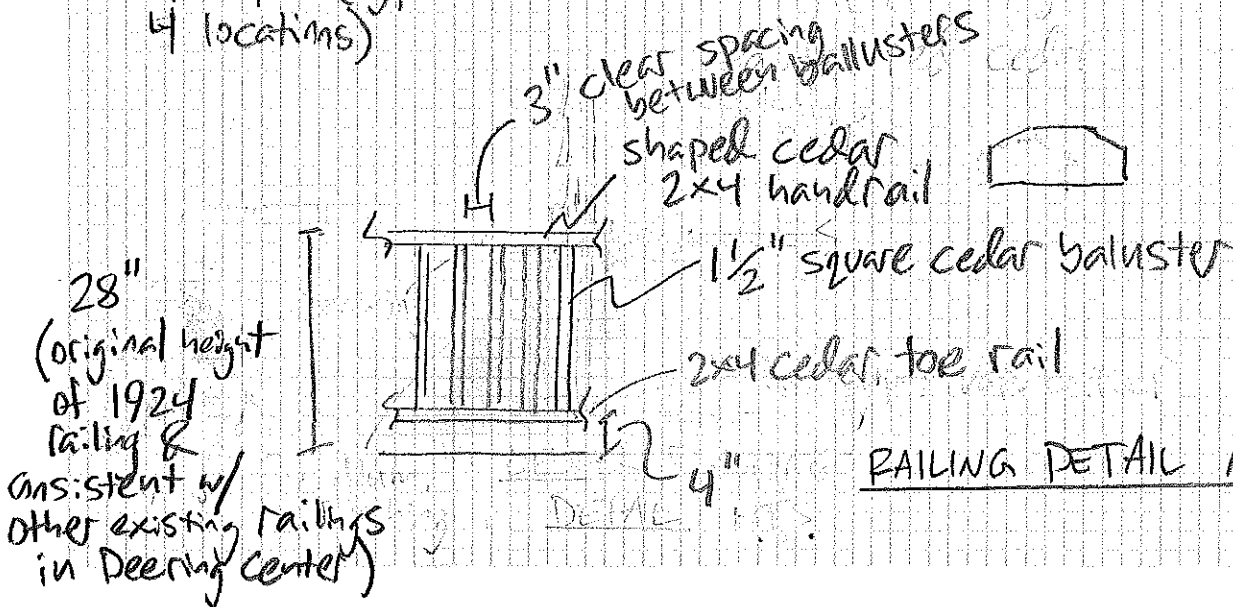 4 locations)
3" clear spacing
between ballusters
shaped cedar
2x4 handrail
1½" square cedar baluster
28"
(original height
of 1924
railing &
consistent w/
other existing railings
in Deering Center)
2x4 cedar toe rail
4"
RAILING DETAIL
DETAIL